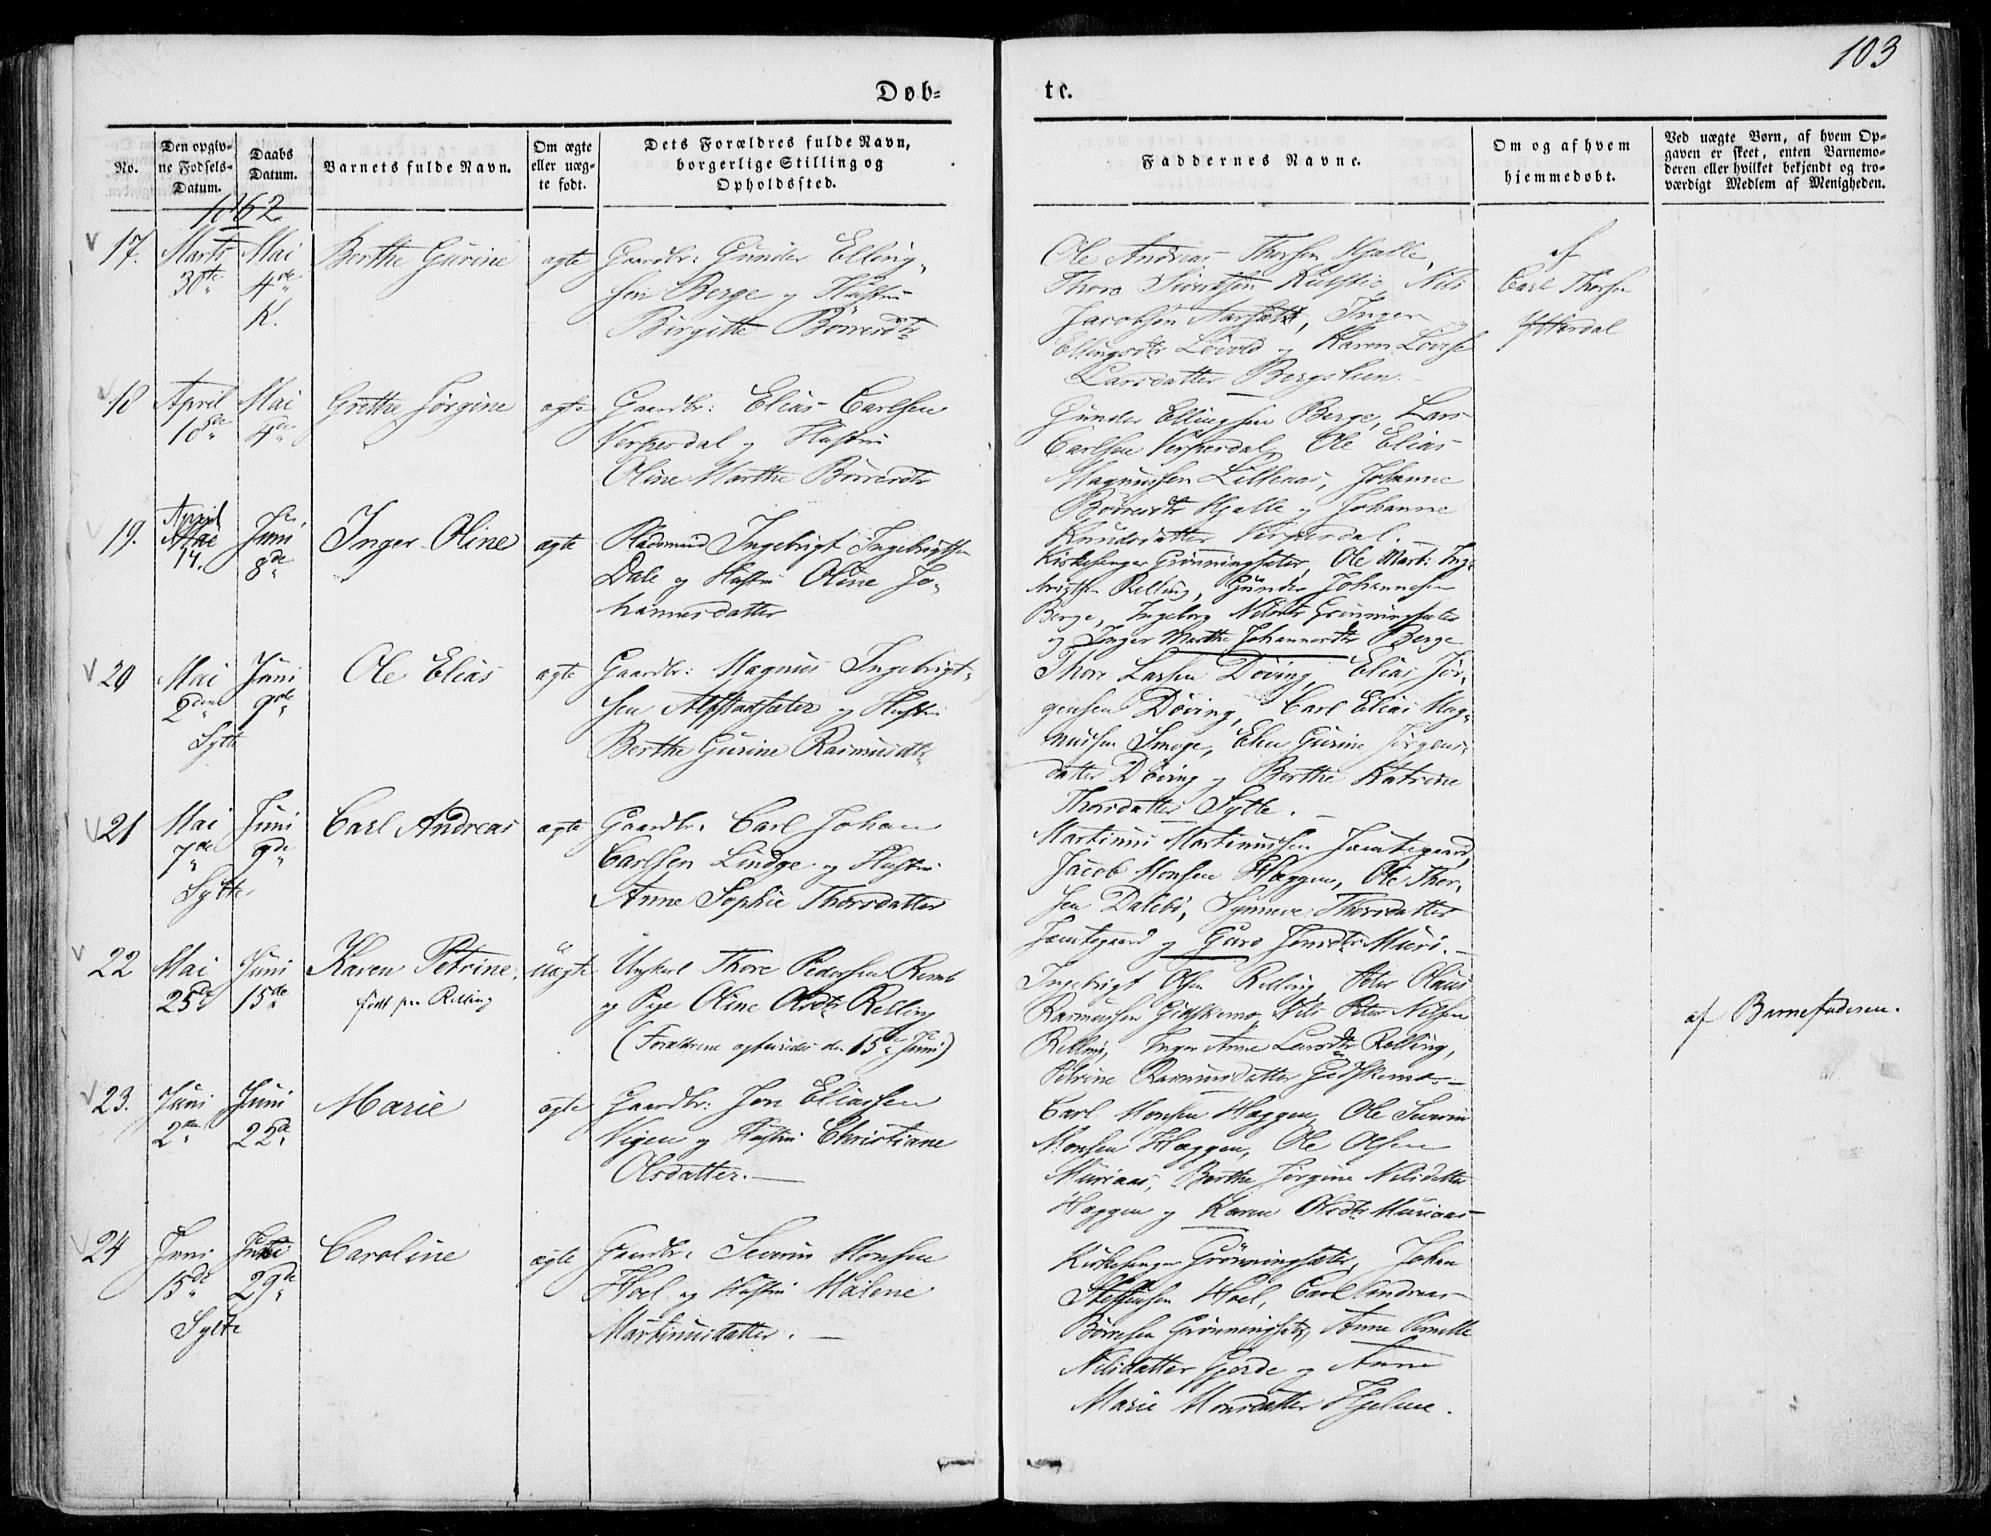 103
Døb-
te.
No.
Den opgiv-
ne Fødsels-
Datum.
Daabs
Datum.
Barnets fulde Navn.
Om ægte
eller uæg-
te født.
Dets Forældres fulde Navn,
borgerlige Stilling og
Opholdssted.
Faddernes Navne.
Om og af hvem
hjemmedøbt.
Ved uægte Børn, af hvem Op-
gaven er skeet, enten Barnemo-
deren eller hvilket bekjendt og tro-
værdigt Medlem af Menigheden.
1862
17. Marts 30te Mai 4de K. Berthe Gurine ægte
Gaardbr: Gunder Elling-
sen Berge og Hustru
Birgitte Børresdtr
Ole Andreas Thorsen Hjelle,
Thore Sivertsen, Nils
Jacobsen, Inger
Ellingsdtr Løvold og Karen Lovise
Larsdatter Bergslien.
af
Carl Thorsen
18 April 18de Mai 4de Grethe Jørgine ægte
Gaardbr: Elias Carlsen
Verpesdal og Hustru
Oline Marthe Børresdtr
Gunder Ellingsen Berge, Lars
Carlsen Verpesdal, Ole Elias
Magnussen Lillenæs, Johanne
Børresdtr Hjelle og Johanne
Knudsdatter Verpesdal.
19. April 14. Juni 8de Inger Oline ægte
Pladsmand Ingebrigt Ingebrigtsen
Dale og Hustru Oline Jo-
hannesdatter
Kirkesanger Grønningsæter, Ole Mart: Ing-
brigtsen Relling, Gunder Johannesen
Berge, Ingeborg Nilsdtr Grønningsæter
og Inger Marthe Johannesdtr Berge
20 Mai 2den Juni 9de Sylte Ole Elias ægte
Gaardbr: Magnus Ingebrigt-
sen Alfstadsæter og Hustru
Berthe Gurine Rasmusdtr
Thore Larsen Døving, Elias Jør-
gensen Døving, Carl Elias Mag-
nussen Smoge, Elen Gurine Jørgens-
datter Døving og Berthe Katrine
Thorsdatter Sylte.
21 Mai 7de Juni 9de Sylte Carl Andreas ægte
Gaardbr: Carl Johan
Carlsen Lindge og Hustru
Anne Sophie Thorsdatter
Martinus Martinussen Jamtegaard,
Jacob Monsen Hæggen, Ole Thor-
sen Dalebø, Synneve Thorsdatter
Jamtegaard og Guro Jensdtr Muri.
22 Mai 25de Juni 15de Karen Petrine. uægte
født paa Relling
Ungkarl Thore Pedersen Remb
og Pige Oline Olsdtr Relling
(Forældrene ægteviedes den 15de Juni)
Ingebrigt Olsen Relling, Peter Olaus
Rasmussen Gidskemo, Nils Peter Nilsen
Relling, Inger Anne Larsdtr Relling,
Petrine Rasmusdatter Gidskemo.
af Barnefaderen.
23. Juni 2den Juni 22de Marie ægte
Gaardbr: Jon Eliassen
Vigen og Hustru Christiane
Olsdatter.
Carl Monsen Hæggen, Ole Severin
Monsen Hæggen, Ole Olsen
Muriaas, Berthe Jørgine Nilsdatter
Hæggen og Karen Olsdtr Muriaas
24 Juni 15de Juni 29de Sylte Caroline ægte
Gaardbr: Severin Monsen
Hoel og Hustru Malene
Martinusdatter.
Kirkesanger Grønningsæter, Johan
Steffensen Hoel, Carl Andreas
Børresen Grønningsæter, Anne Pernille
Nilsdatter Gjerde og Anne
Marie Monsdatter Hjelme.